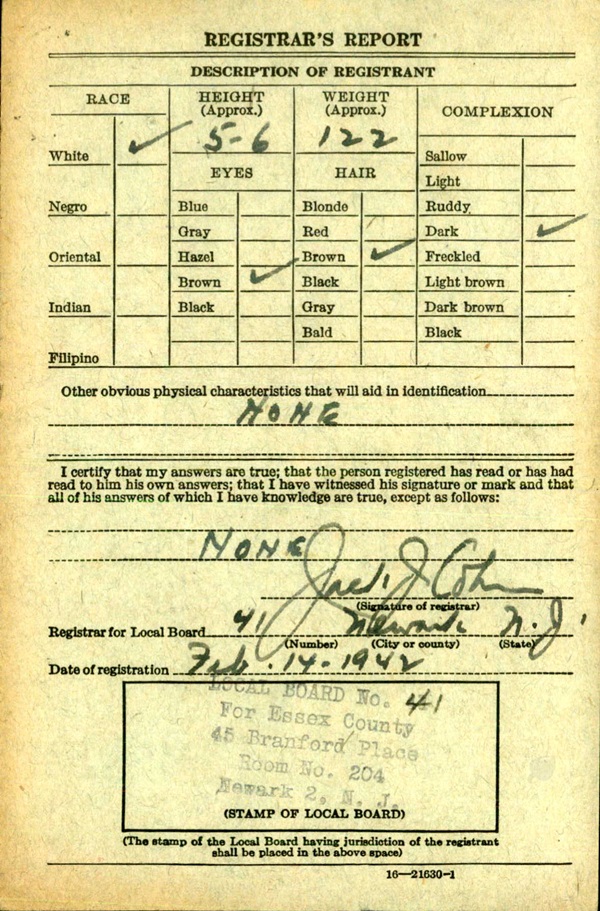 REGISTRAR'S REPORT
DESCRIPTION OF REGISTRANT
RACE
HEIGHT
(Approx.)
WEIGHT
(Approx.)
COMPLEXION
5-6
122
White ✓
Sallow
EYES
HAIR
Light
Negro
Blue
Blonde
Ruddy
Gray
Red
Dark ✓
Oriental
Hazel
Brown ✓
Freckled
Brown ✓
Black
Light brown
Indian
Black
Gray
Dark brown
Bald
Black
Filipino
Other obvious physical characteristics that will aid in identification
NONE
I certify that my answers are true; that the person registered has read or has had
read to him his own answers; that I have witnessed his signature or mark and that
all of his answers of which I have knowledge are true, except as follows:
NONE
Jack J Cohn
(Signature of registrar)
Registrar for Local Board 41 Newark N.J.
(Number) (City or county) (State)
Date of registration Feb. 14-1942
LOCAL BOARD No. 41
For Essex County
45 Branford Place
Room No. 204
Newark 2, N. J.
(STAMP OF LOCAL BOARD)
(The stamp of the Local Board having jurisdiction of the registrant
shall be placed in the above space)
16—21630-1